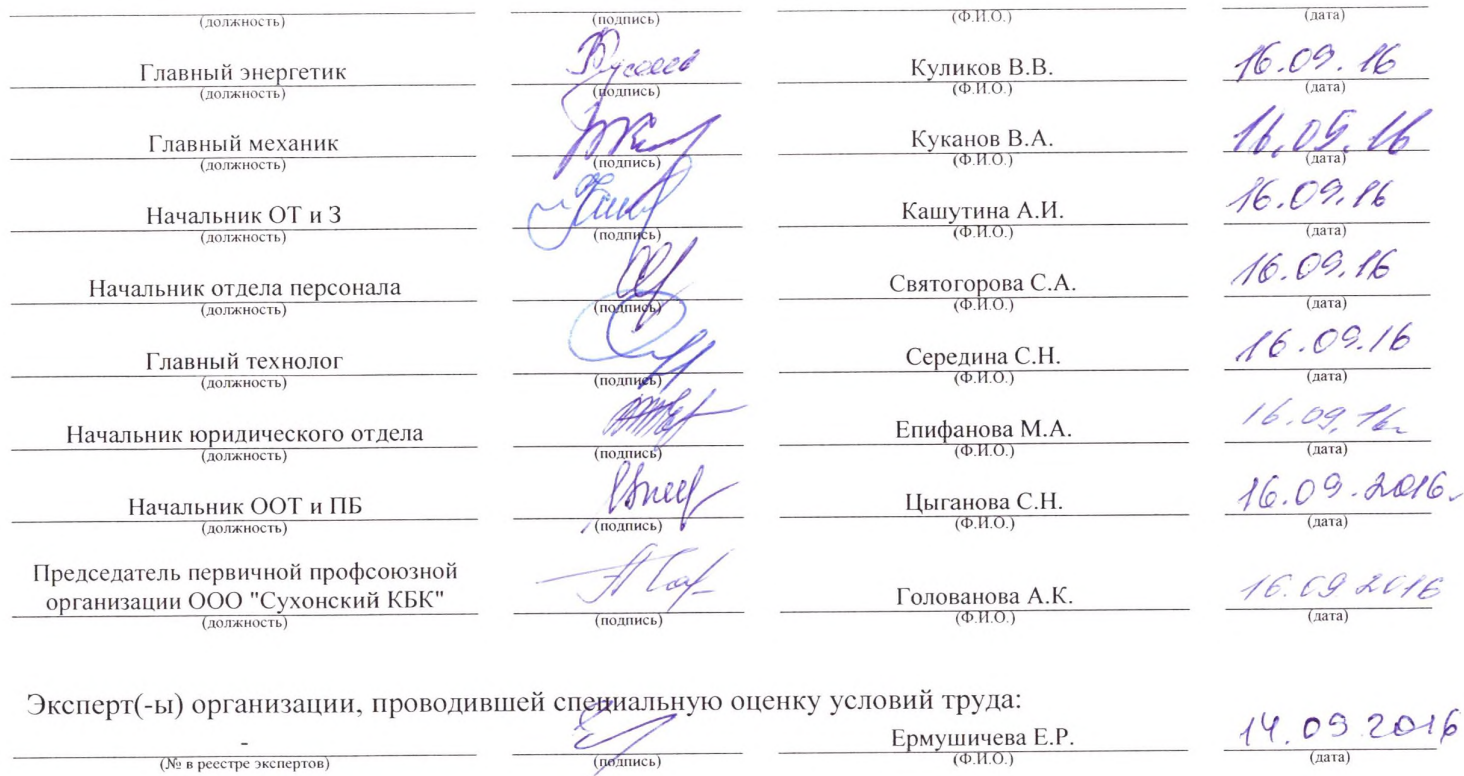 (должность) (подпись) (Ф.И.О.) (дата)
Главный энергетик Куликов В.В. 16.09.16
(должность) (подпись) (Ф.И.О.) (дата)
Главный механик Куканов В.А. 16.09.16
(должность) (подпись) (Ф.И.О.) (дата)
Начальник ОТ и З Кашутина А.И. 16.09.16
(должность) (подпись) (Ф.И.О.) (дата)
Начальник отдела персонала Святогорова С.А. 16.09.16
(должность) (подпись) (Ф.И.О.) (дата)
Главный технолог Середина С.Н. 16.09.16
(должность) (подпись) (Ф.И.О.) (дата)
Начальник юридического отдела Епифанова М.А. 16.09.16г
(должность) (подпись) (Ф.И.О.) (дата)
Начальник ООТ и ПБ Цыганова С.Н. 16.09.2016г
(должность) (подпись) (Ф.И.О.) (дата)
Председатель первичной профсоюзной
организации ООО "Сухонский КБК" Голованова А.К. 16.09 2016
(должность) (подпись) (Ф.И.О.) (дата)
Эксперт(-ы) организации, проводившей специальную оценку условий труда:
- Ермушичева Е.Р. 14.09 2016
(№ в реестре экспертов) (подпись) (Ф.И.О.) (дата)